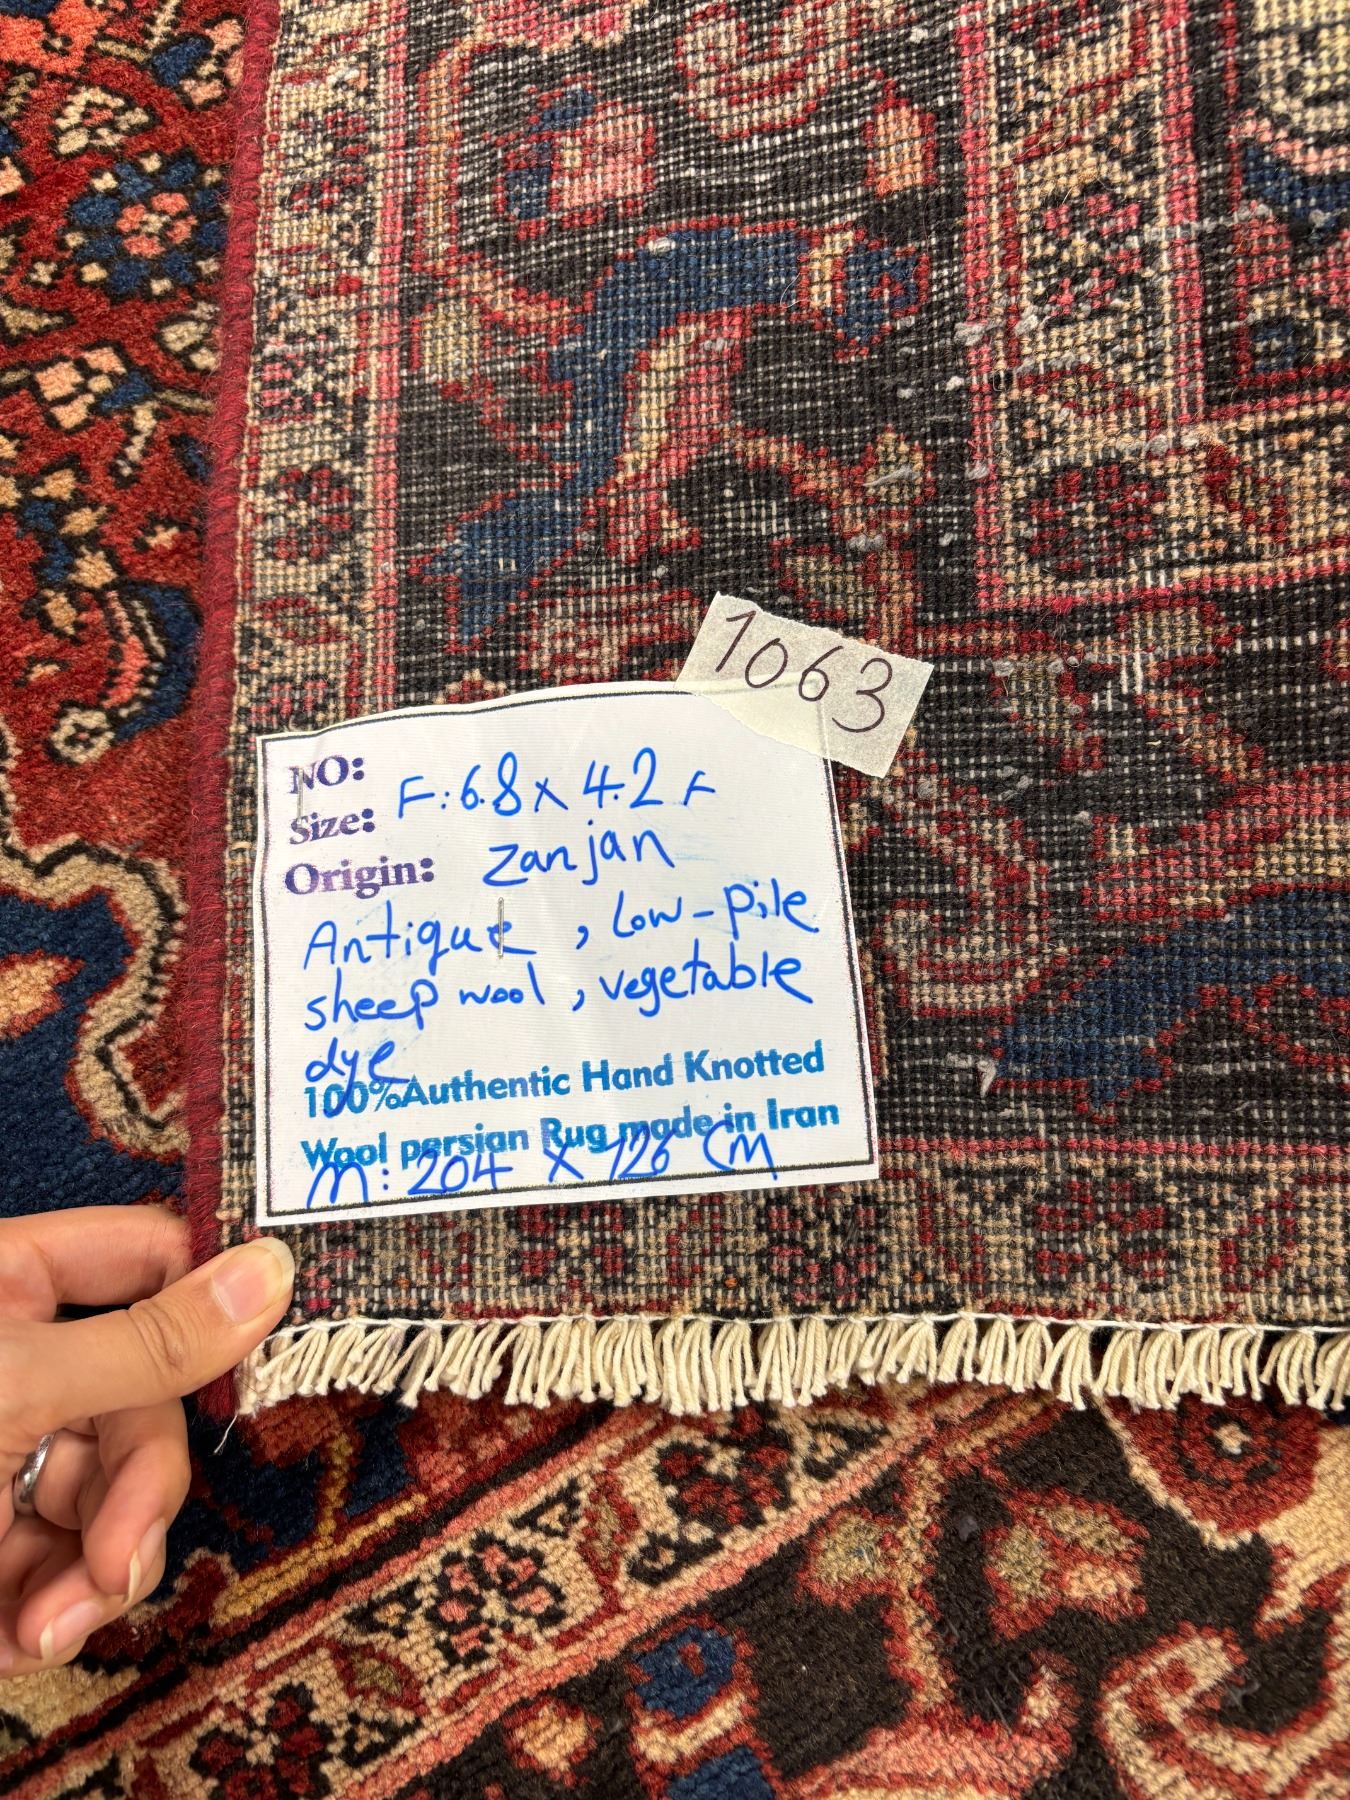 1063
NO:
Size: F: 6.8 x 4.2 F
Origin: Zanjan
Antique , Low-pile
sheep wool , vegetable
dye
100%Authentic Hand Knotted
Wool persian Rug made in Iran
M: 204 x 126 CM